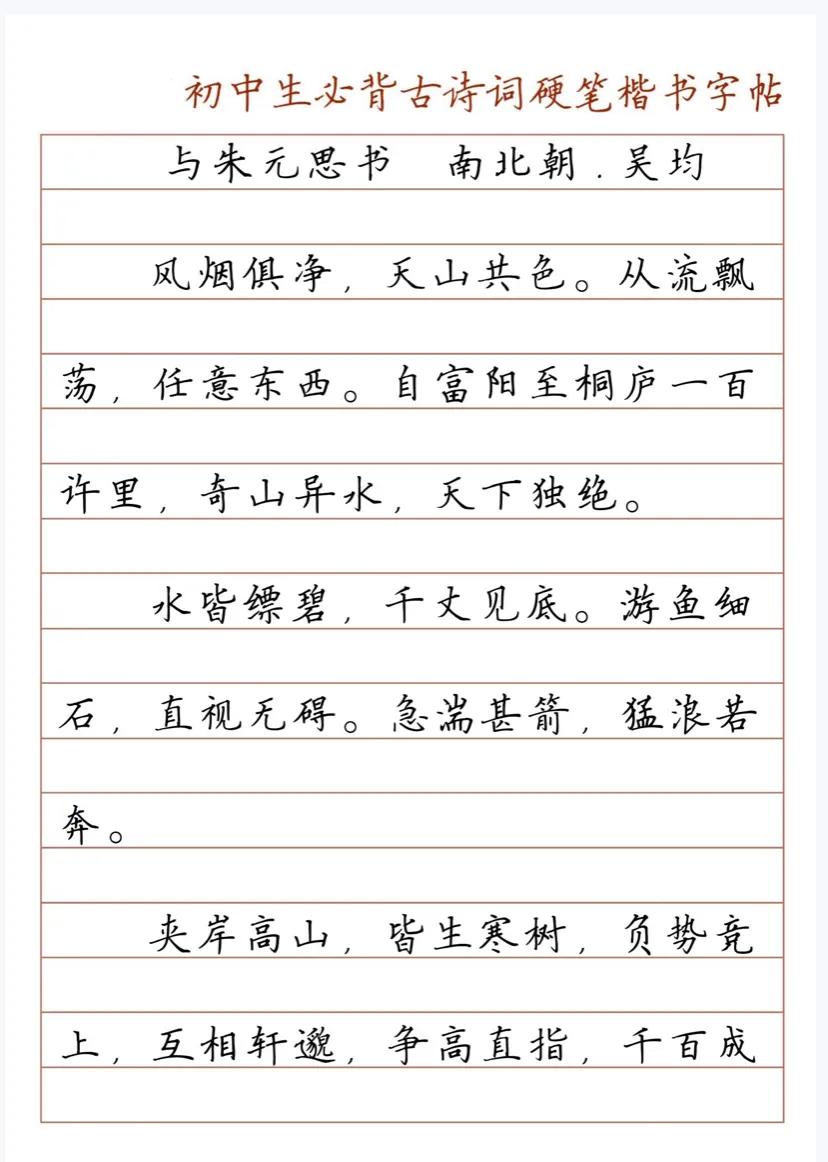 初中生必背古诗词硬笔楷书字帖
与朱元思书 南北朝.吴均
风烟俱净，天山共色。从流飘
荡，任意东西。自富阳至桐庐一百
许里，奇山异水，天下独绝。
水皆缥碧，千丈见底。游鱼细
石，直视无碍。急湍甚箭，猛浪若
奔。
夹岸高山，皆生寒树，负势竞
上，互相轩邈，争高直指，千百成